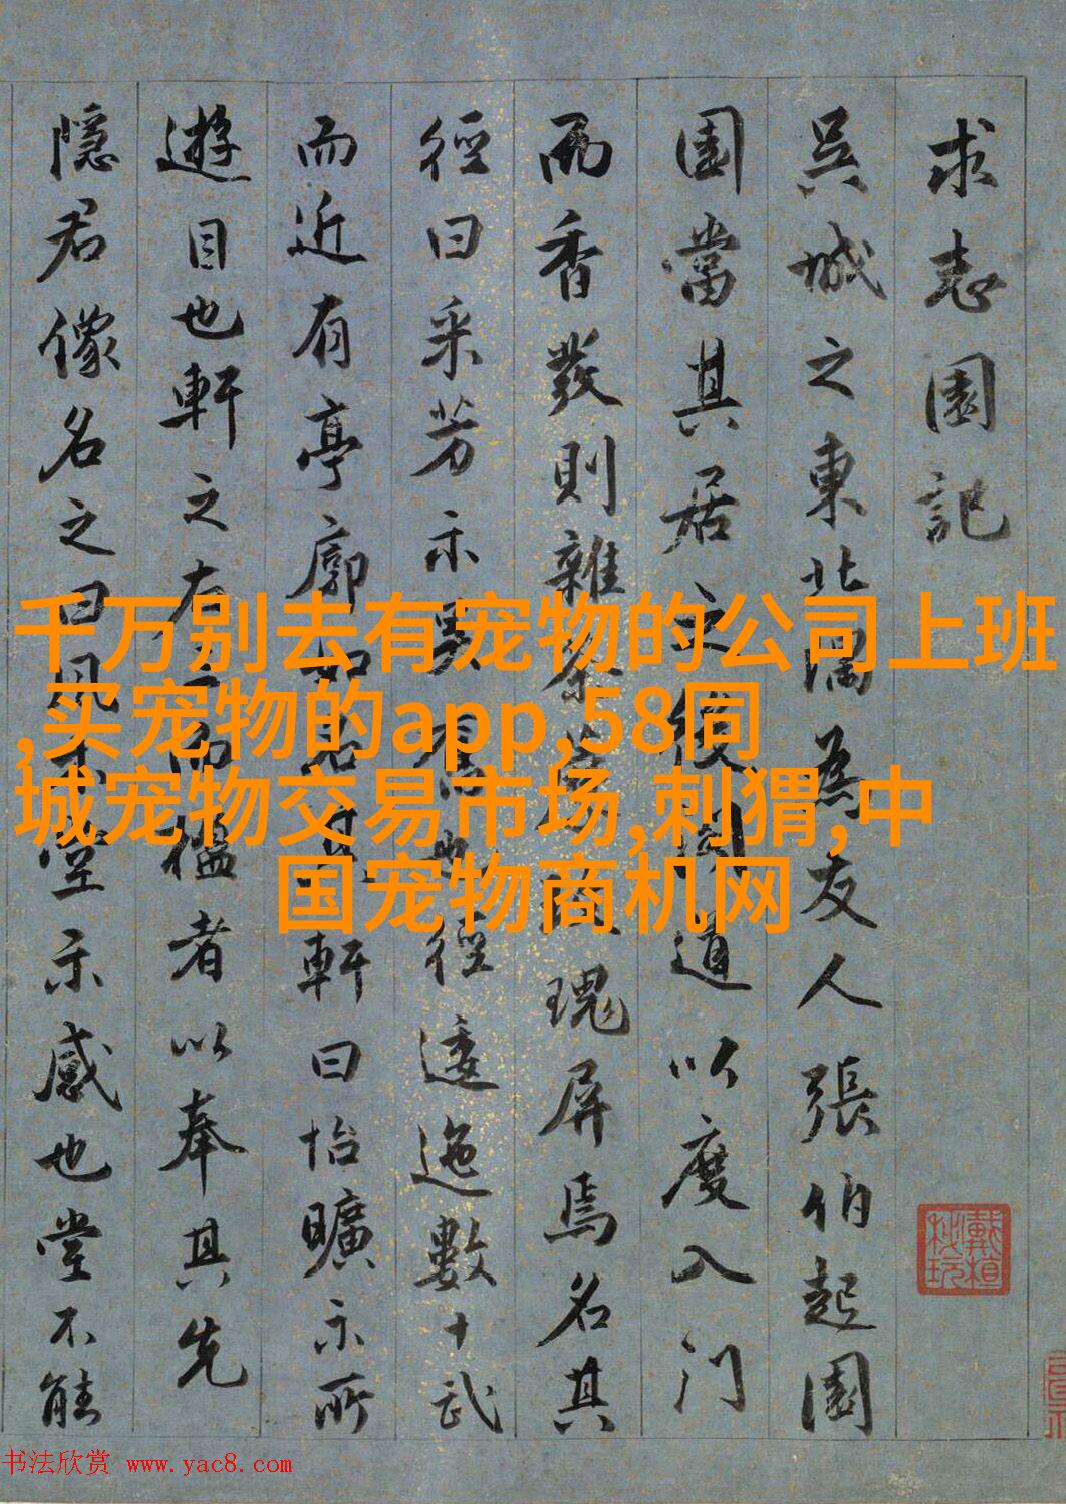 求志園記
吳城之東北隅為友人張伯起園
園當其居之後閣道以度入門
而香發則雜荼瑰屏焉名其
徑曰采芳示也徑逶迤數十武
而近有亭廓如名其軒曰怡曠示所
遊目也軒之右而楹者以奉其先
隱君像名之曰風木堂示感也堂不能
千万别去有宠物的公司上班
,买宠物的app,58同
城宠物交易市场,刺猬,中
国宠物商机网
书法欣赏 www.yac8.com